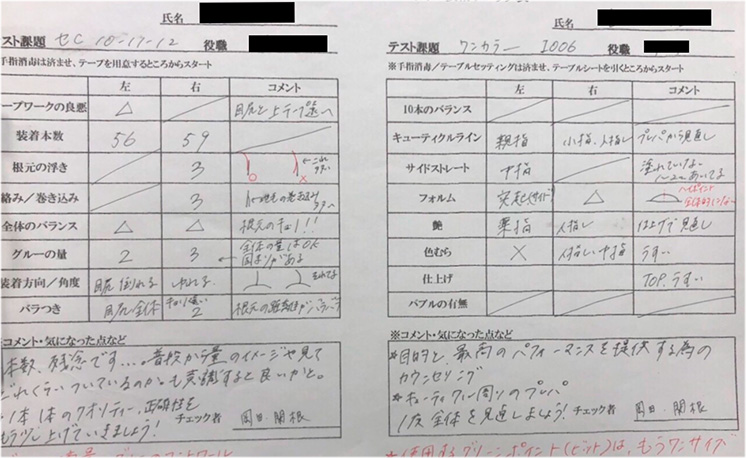 氏名
スト課題 セC 10-17-12 役職
手指消毒は済ませ、テープを用意するところからスタート
左 右 コメント
ープワークの良悪 △
装着本数 56 59
根元の浮き 3
絡み／巻き込み 3
全体のバランス △ △ 根元のキョリ!!
グルーの量 2 3 ← 全体の量はOK
固まりがある
装着方向／角度 目尻 倒れる
バラつき 目尻 全体 2 根元の距離がバラバラ
コメント・気になった点など
本数、残念です…。普段から量のイメージや見て
どれくらいついているのかも意識すると良いかと。
1本1本のクオリティー、正確性を
もう少し上げていきましょう! チェック者 岡田・関根
氏名
テスト課題 ワンカラー I006 役職
※手指消毒／テーブルセッティングは済ませ、テーブルシートを引くところからスタート
左 右 コメント
10本のバランス
キューティクルライン 親指 小指、人指し プレパから見直し
サイドストレート 中指 塗れていない
フォルム △ ハイポイント
艶 薬指 人指し 仕上げ見直し
色むら × 人指し・中指 うすい
仕上げ TOP. うすい
バブルの有無
※コメント・気になった点など
*目的と、最高のパフォーマンスを提供する為の
カウンセリング
*キューティクル周りのプレパ
1度全体を見直しましょう! チェック者 岡田・関根